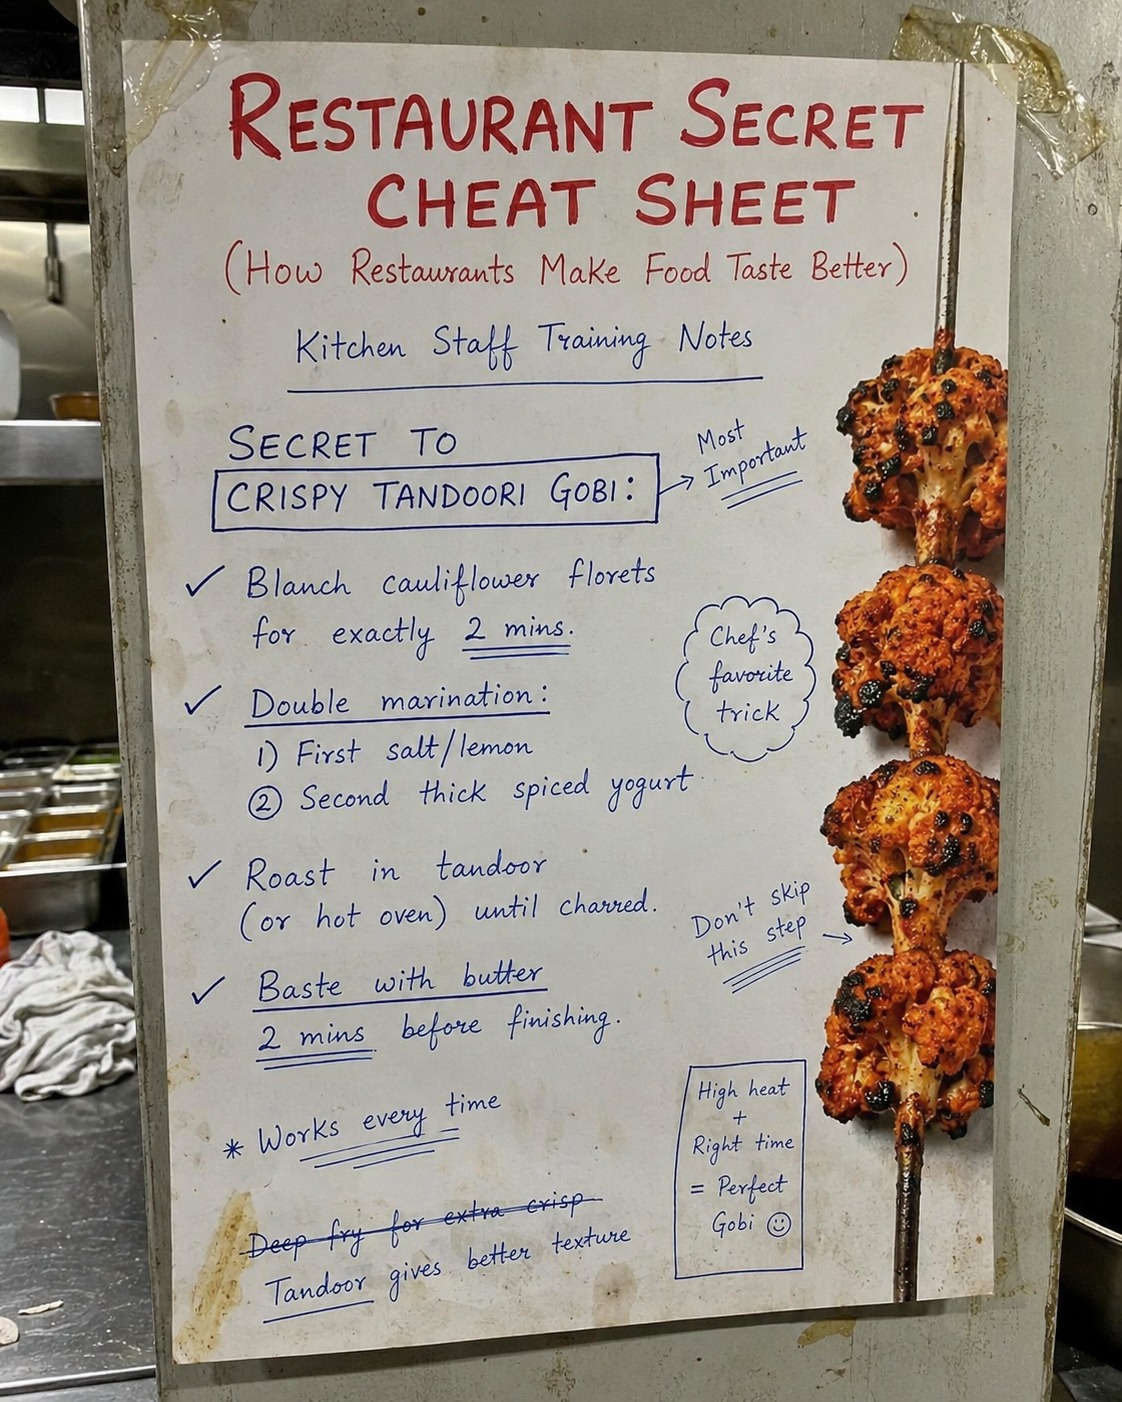 RESTAURANT SECRET
CHEAT SHEET
(How Restaurants Make Food Taste Better)
Kitchen Staff Training Notes
SECRET TO
CRISPY TANDOORI GOBI:
Most
Important
✓ Blanch cauliflower florets
for exactly 2 mins.
Chef's
favorite
trick
✓ Double marination:
1) First salt/lemon
② Second thick spiced yogurt
✓ Roast in tandoor
(or hot oven) until charred.
Don't skip
this step →
✓ Baste with butter
2 mins before finishing.
* Works every time
High heat
+
Right time
= Perfect
Gobi ☺
Deep fry for extra crisp
Tandoor gives better texture